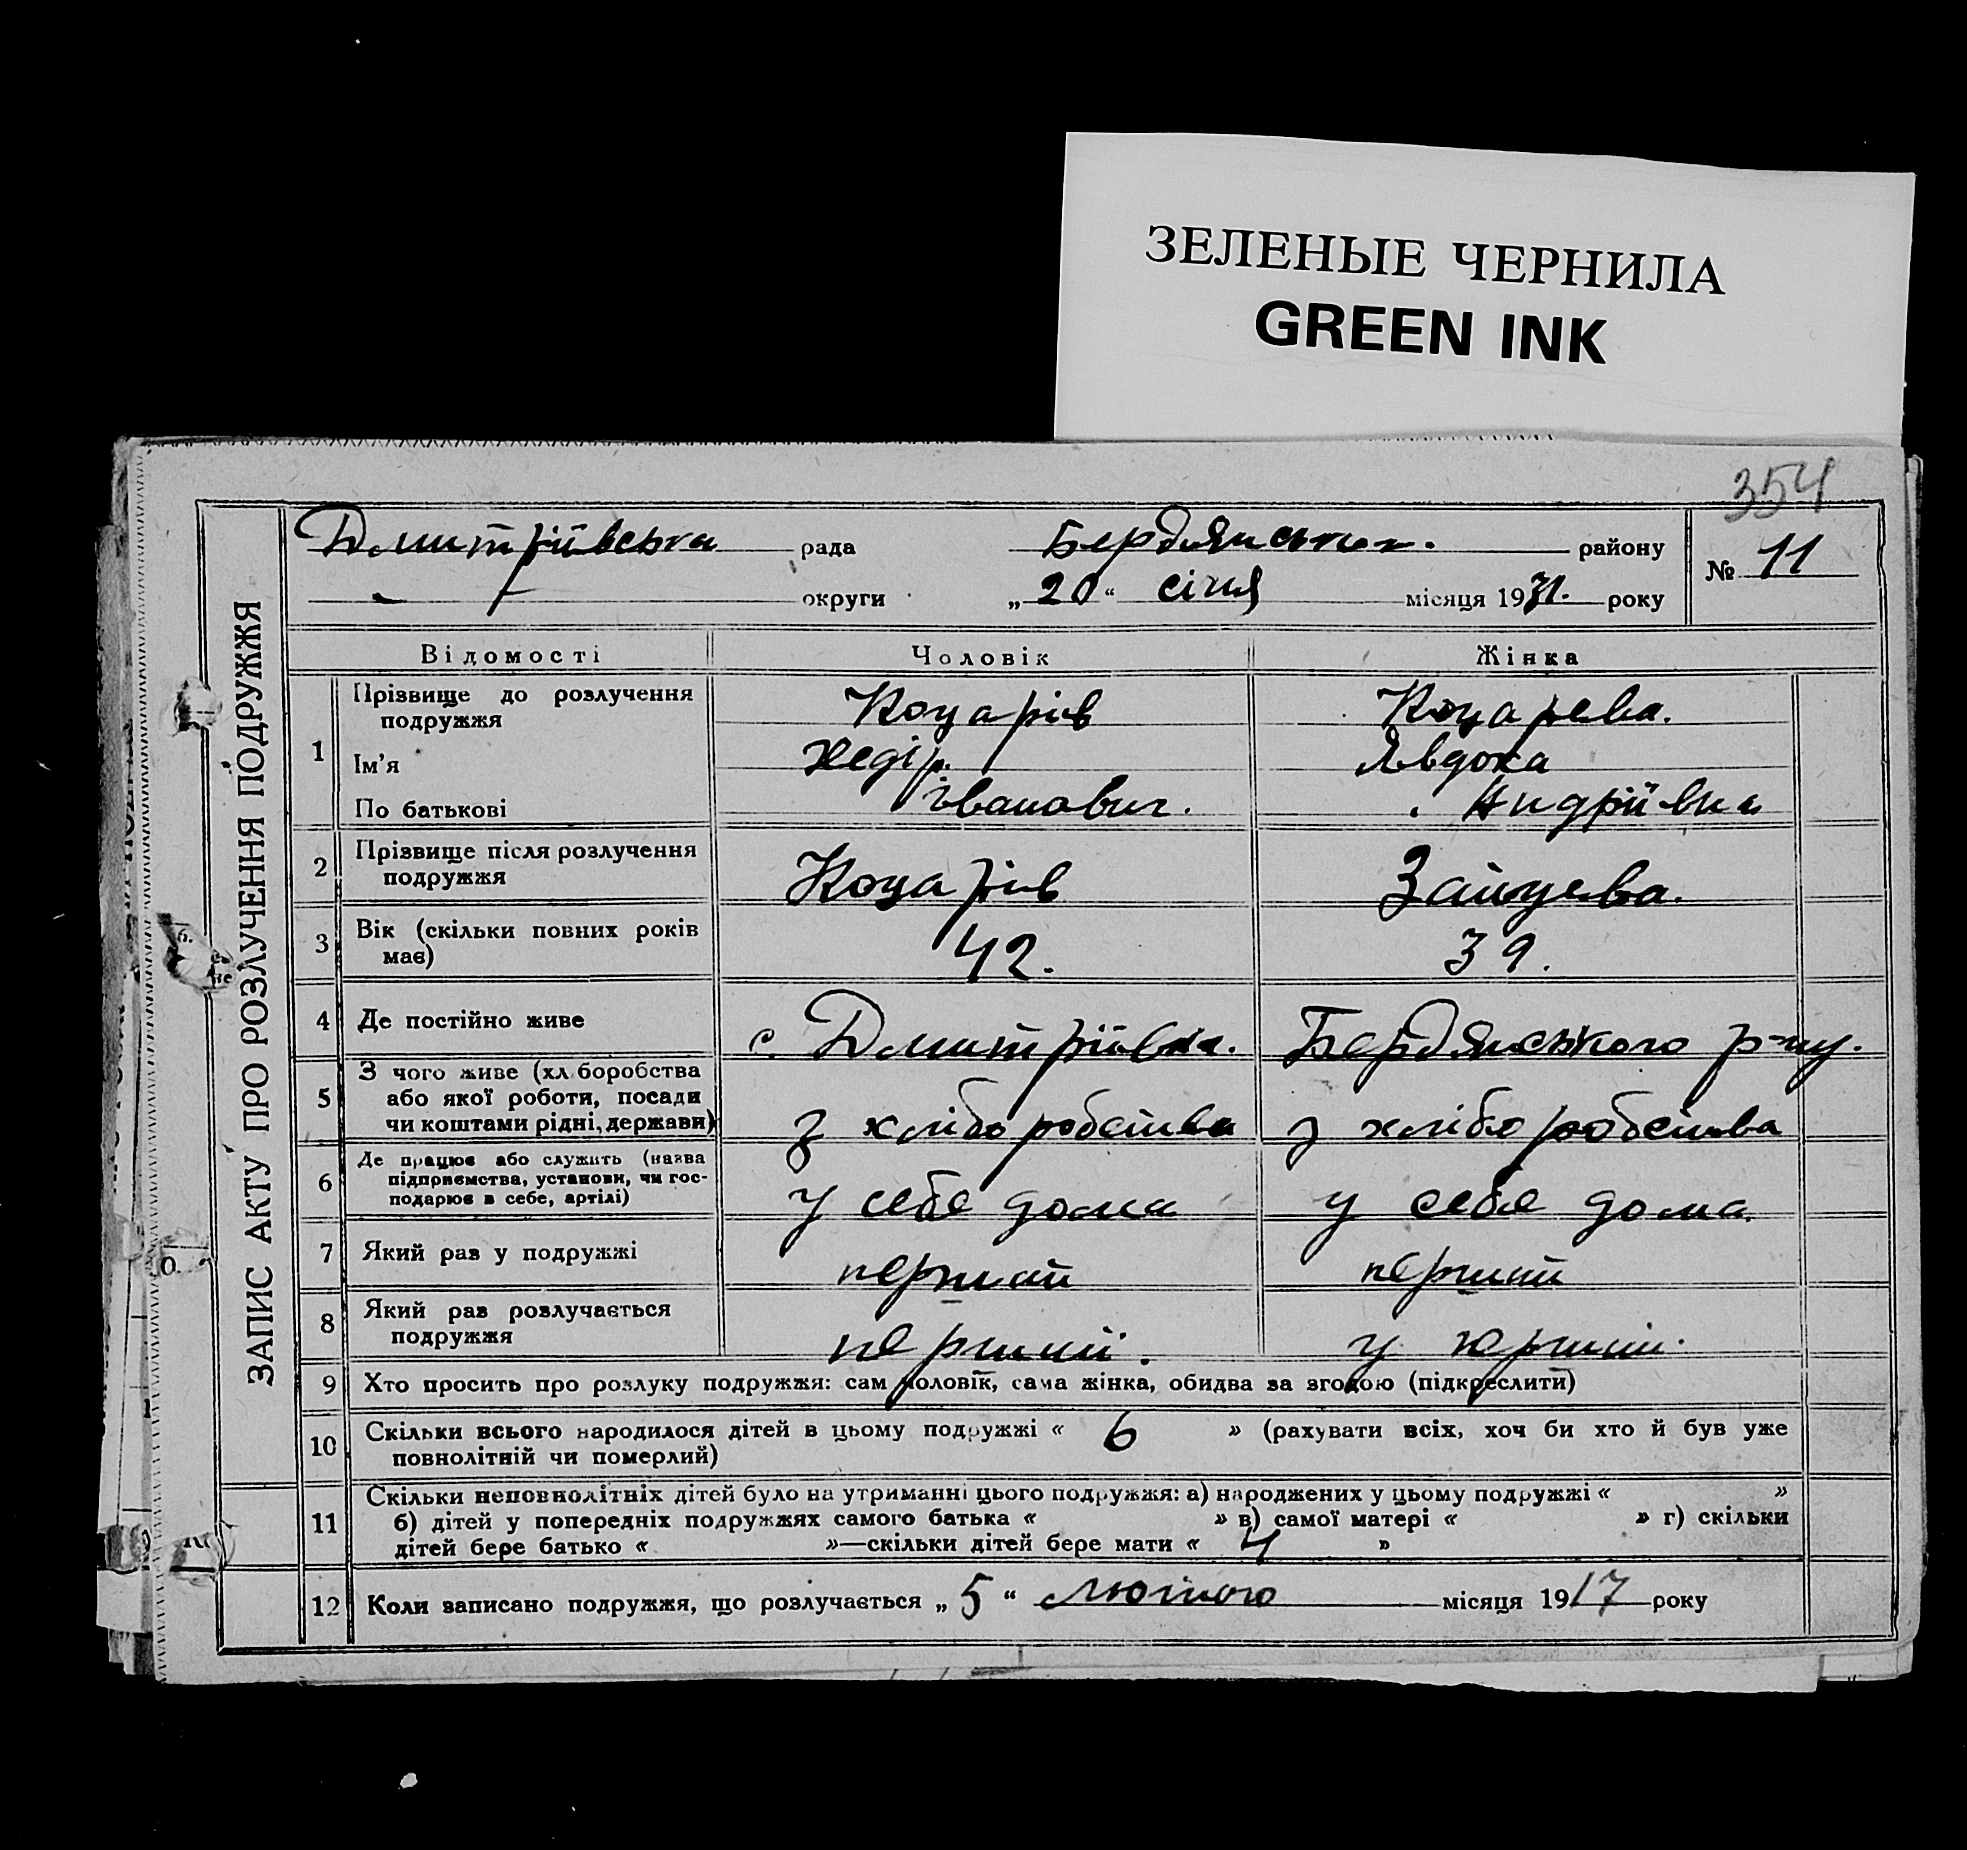 ЗЕЛЕНЫЕ ЧЕРНИЛА
GREEN INK
354
ЗАПИС АКТУ ПРО РОЗЛУЧЕННЯ ПОДРУЖЖЯ
Дмитріївська рада Бердянськ. району № 11
округи „20“ січня місяця 1931. року
Відомості Чоловік Жінка
1 Прізвище до розлучення подружжя Коцарів Коцарева.
Ім'я Хедір. Явдоха
По батькові Іванович. Андріївна
2 Прізвище після розлучення подружжя Коцарів Зайцева.
3 Вік (скільки повних років має) 42. 39.
4 Де постійно живе с. Дмитрівка. Бердянського р-ну.
5 З чого живе (хліборобства або якої роботи, посади чи коштами рідні, держави) з хліборобства з хліборобства
6 Де працює або служить (назва підприємства, установи, чи господарює в себе, артілі) у себе дома у себе дома.
7 Який раз у подружжі перший перший
8 Який раз розлучається подружжя перший. у перший.
9 Хто просить про розлуку подружжя: сам чоловік, сама жінка, обидва за згодою (підкреслити)
10 Скільки всього народилося дітей в цьому подружжі « 6 » (рахувати всіх, хоч би хто й був уже
повнолітній чи померлий)
11 Скільки неповнолітніх дітей було на утриманні цього подружжя: а) народжених у цьому подружжі « »
б) дітей у попередніх подружжях самого батька « » в) самої матері « » г) скільки
дітей бере батько « »—скільки дітей бере мати « 4 »
12 Коли записано подружжя, що розлучається „ 5 “ лютого місяця 1917 року